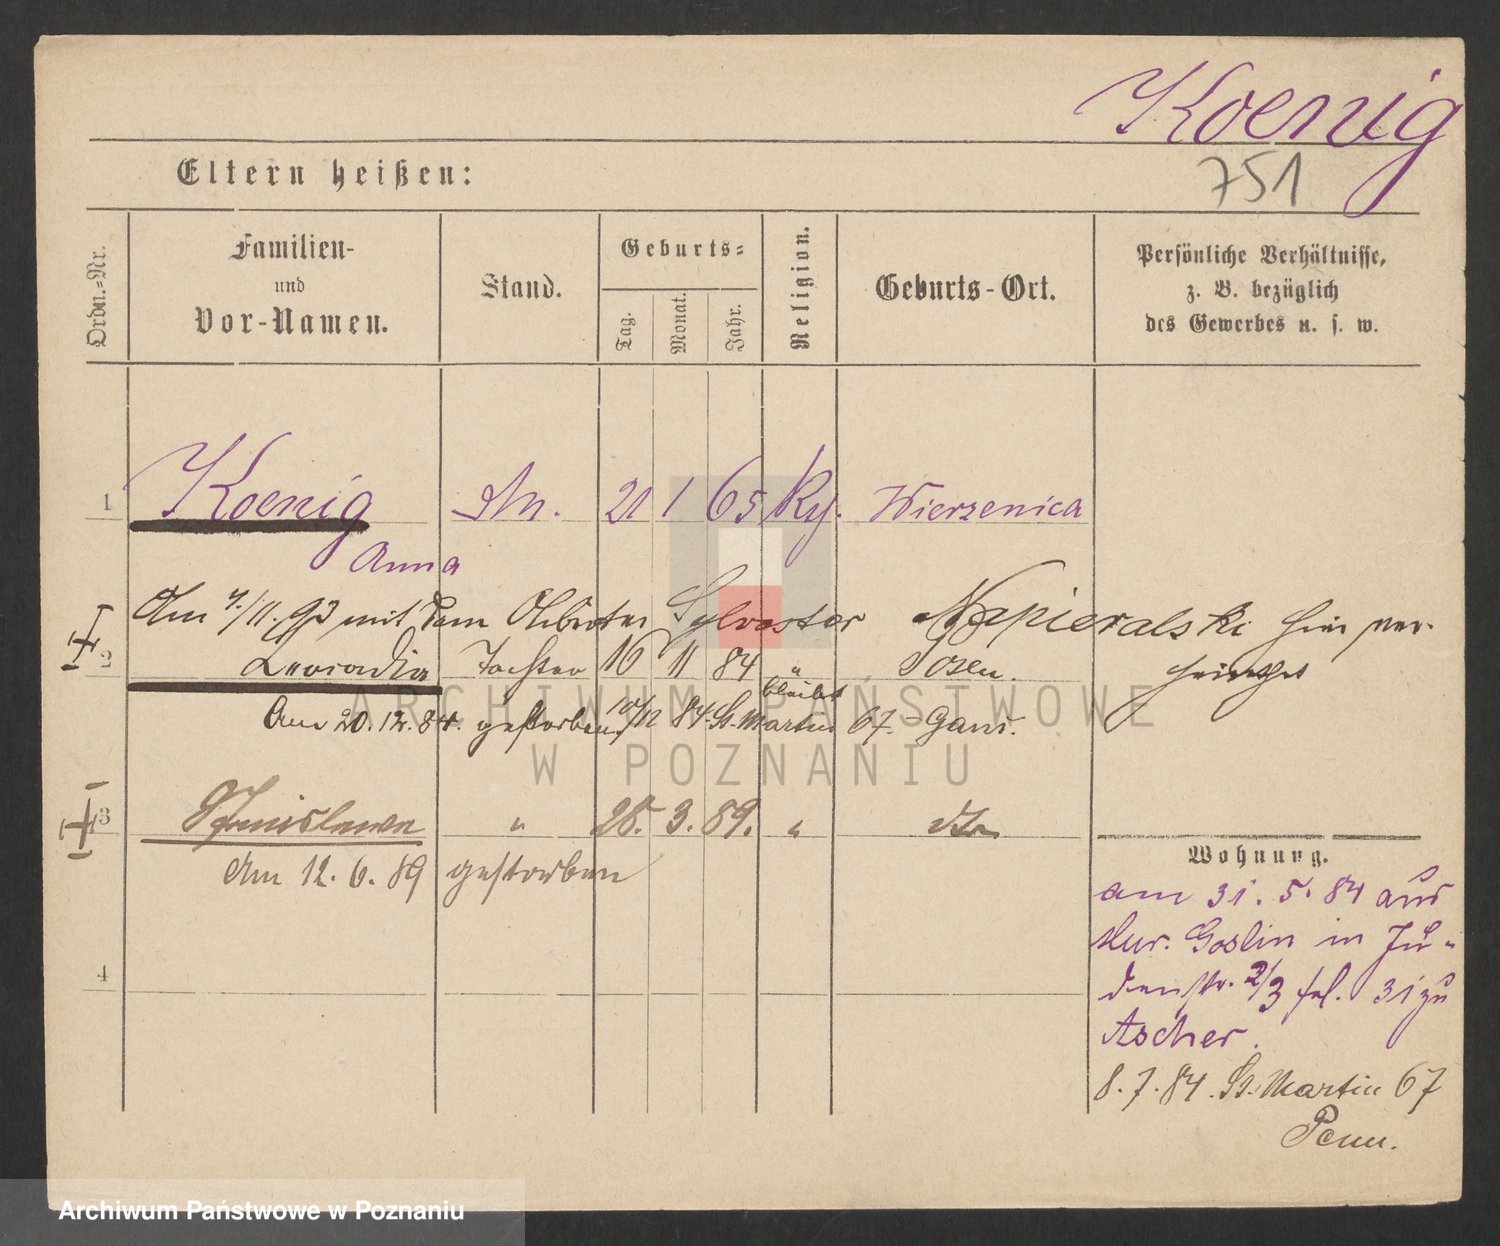 Koenig
751
Eltern heißen:
Ordn.=Nr.
Familien-
und
Vor-Namen.
Stand.
Geburts=
Tag.
Monat.
Jahr.
Religion.
Geburts-Ort.
Persönliche Verhältnisse,
z. B. bezüglich
des Gewerbes u. s. w.
1 Koenig 21 1 65 Wierzenica
Anna
Am 7./11. 93 mit dem Arbeiter Sylvester Napieralski hier ver-
heirathet
2 Leocadia Tochter 16 11 84 " Posen.
Am 20.12.84. gestorben 10/12 84. St. Martin 67.
bleibt
3 Stanislawa " 28. 3. 89. " dto
Am 12. 6. 89 gestorben
4
Wohnung.
am 31. 5. 84 aus
Mur. Goslin in Ju-
denstr. 2/3 31 zu
Ascher.
8. 7. 84. St. Martin 67
ARCHIWUM PAŃSTWOWE
W POZNANIU
Archiwum Państwowe w Poznaniu